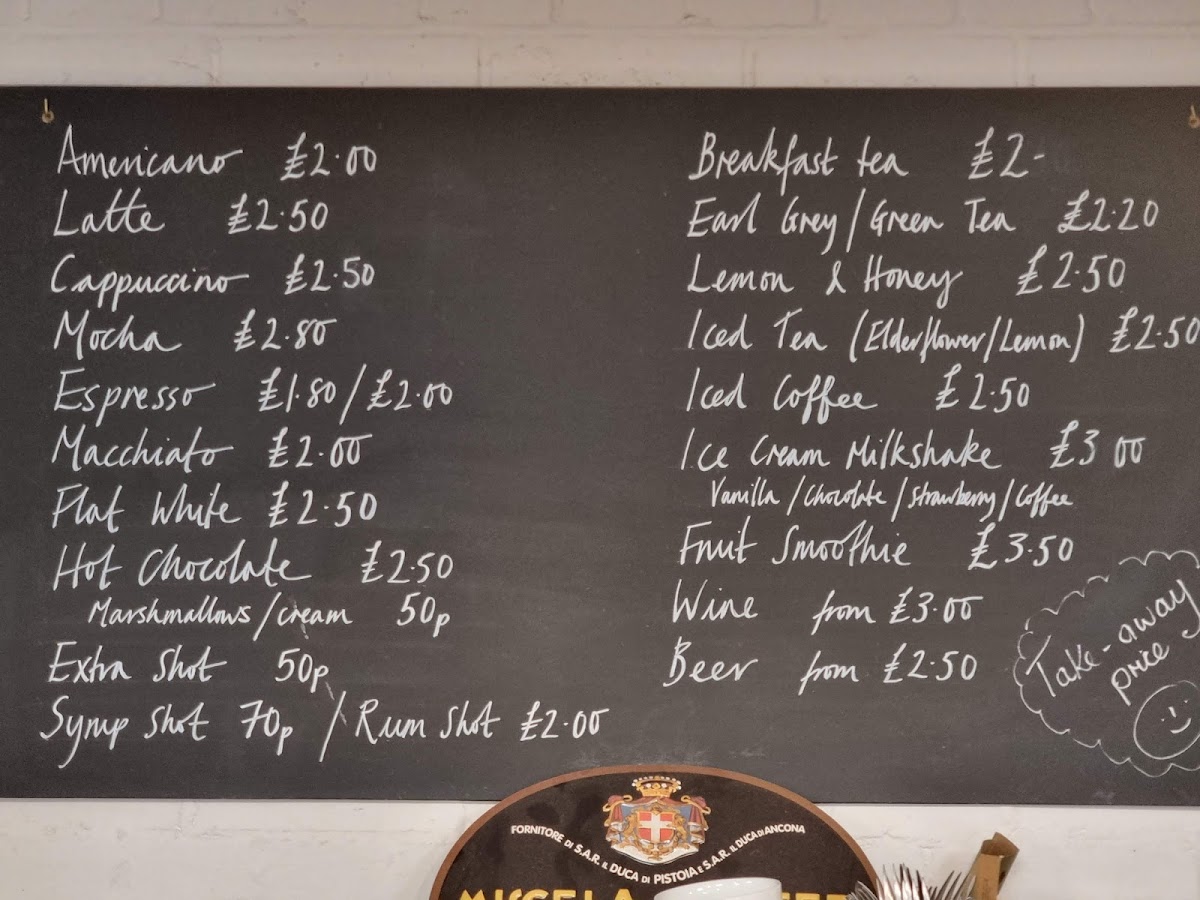 Americano £2.00
Latte £2.50
Cappuccino £2.50
Mocha £2.80
Espresso £1.80/£2.00
Macchiato £2.00
Flat White £2.50
Hot Chocolate £2.50
Marshmallows/cream 50p
Extra Shot 50p
Syrup shot 70p / Rum Shot £2.00
Breakfast tea £2-
Earl Grey/Green Tea £2.20
Lemon & Honey £2.50
Iced Tea (Elderflower/Lemon) £2.50
Iced Coffee £2.50
Ice Cream Milkshake £3 00
Vanilla/Chocolate/Strawberry/Coffee
Fruit Smoothie £3.50
Wine from £3.00
Beer from £2.50
Take-away
price
FORNITORE DI S.A.R. IL DUCA DI PISTOIA E S.A.R. IL DUCA DI ANCONA